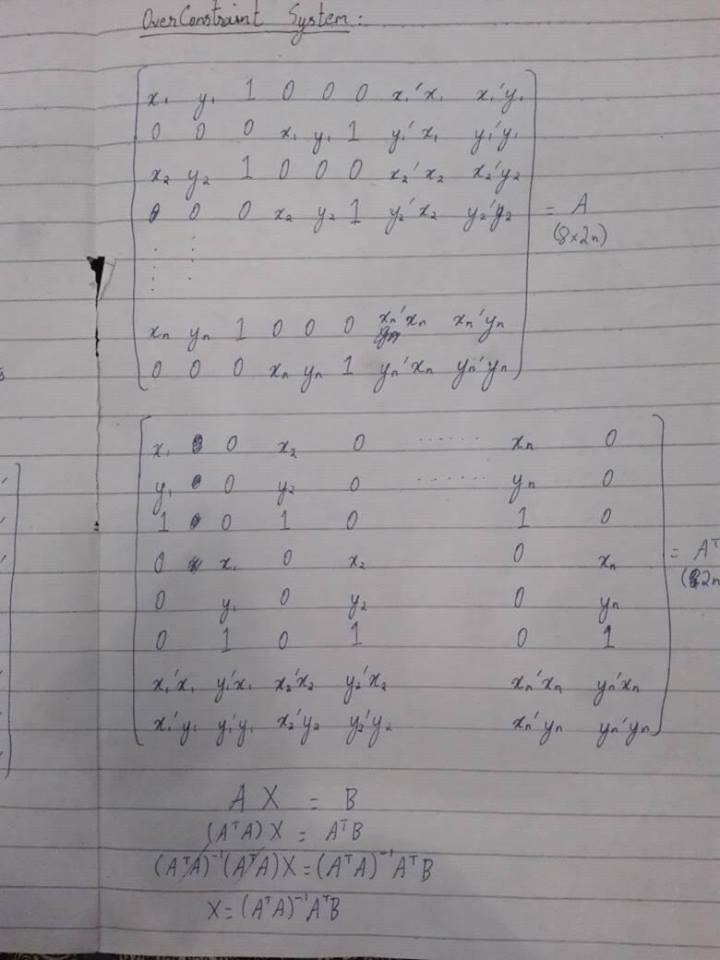 OverConstraint System:
x₁ y₁ 1 0 0 0 x₁'x₁ x₁'y₁
0 0 0 x₁ y₁ 1 y₁'x₁ y₁'y₁
x₂ y₂ 1 0 0 0 x₂'x₂ x₂'y₂
0 0 0 x₂ y₂ 1 y₂'x₂ y₂'y₂ = A
(8×2n)
xₙ yₙ 1 0 0 0 xₙ'xₙ xₙ'yₙ
0 0 0 xₙ yₙ 1 yₙ'xₙ yₙ'yₙ
x₁ 0 x₂ 0 ...... xₙ 0
y₁ 0 y₂ 0 ...... yₙ 0
1 0 1 0 1 0
0 x₁ 0 x₂ 0 xₙ = Aᵀ
0 y₁ 0 y₂ 0 yₙ (2n
0 1 0 1 0 1
x₁'x₁ y₁'x₁ x₂'x₂ y₂'x₂ xₙ'xₙ yₙ'xₙ
x₁'y₁ y₁'y₁ x₂'y₂ y₂'y₂ xₙ'yₙ yₙ'yₙ
A X = B
(AᵀA)X = AᵀB
(AᵀA)⁻¹(AᵀA)X = (AᵀA)⁻¹AᵀB
X = (AᵀA)⁻¹AᵀB